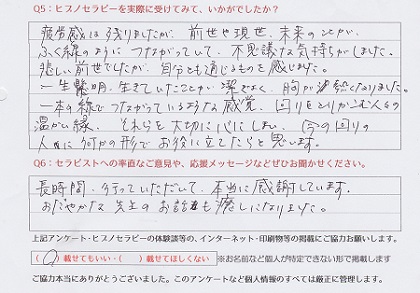 Q5：ヒプノセラピーを実際に受けてみて、いかがでしたか？
疲労感は残りましたが、前世と現世、未来のことが、
ふく線のようにつながっていて、不思議な気持ちがしました。
悲しい前世でしたが、自分とも通じるものを感じました。
一生懸明、生きていたことが、潔よく、胸が熱くなりました。
一本の線でつながっているような感覚、回りをとりかこむ人々の
温かい縁、それらを大切に心にしまい、今の回りの
人々に何かの形でお役に立てたらと思います。
Q6：セラピストへの率直なご意見や、応援メッセージなどぜひお聞かせください。
長時間、行っていただいて、本当に感謝しています。
おだやかな先生のお話も癒しになりました。
上記アンケート・ヒプノセラピーの体験談等の、インターネット・印刷物等の掲載にご協力お願いします。
（ ）載せてもいい・（ ）載せてほしくない ※お名前など個人が特定できない形で掲載します
ご協力本当にありがとうございました。このアンケートなど個人情報のすべては厳正に管理します。